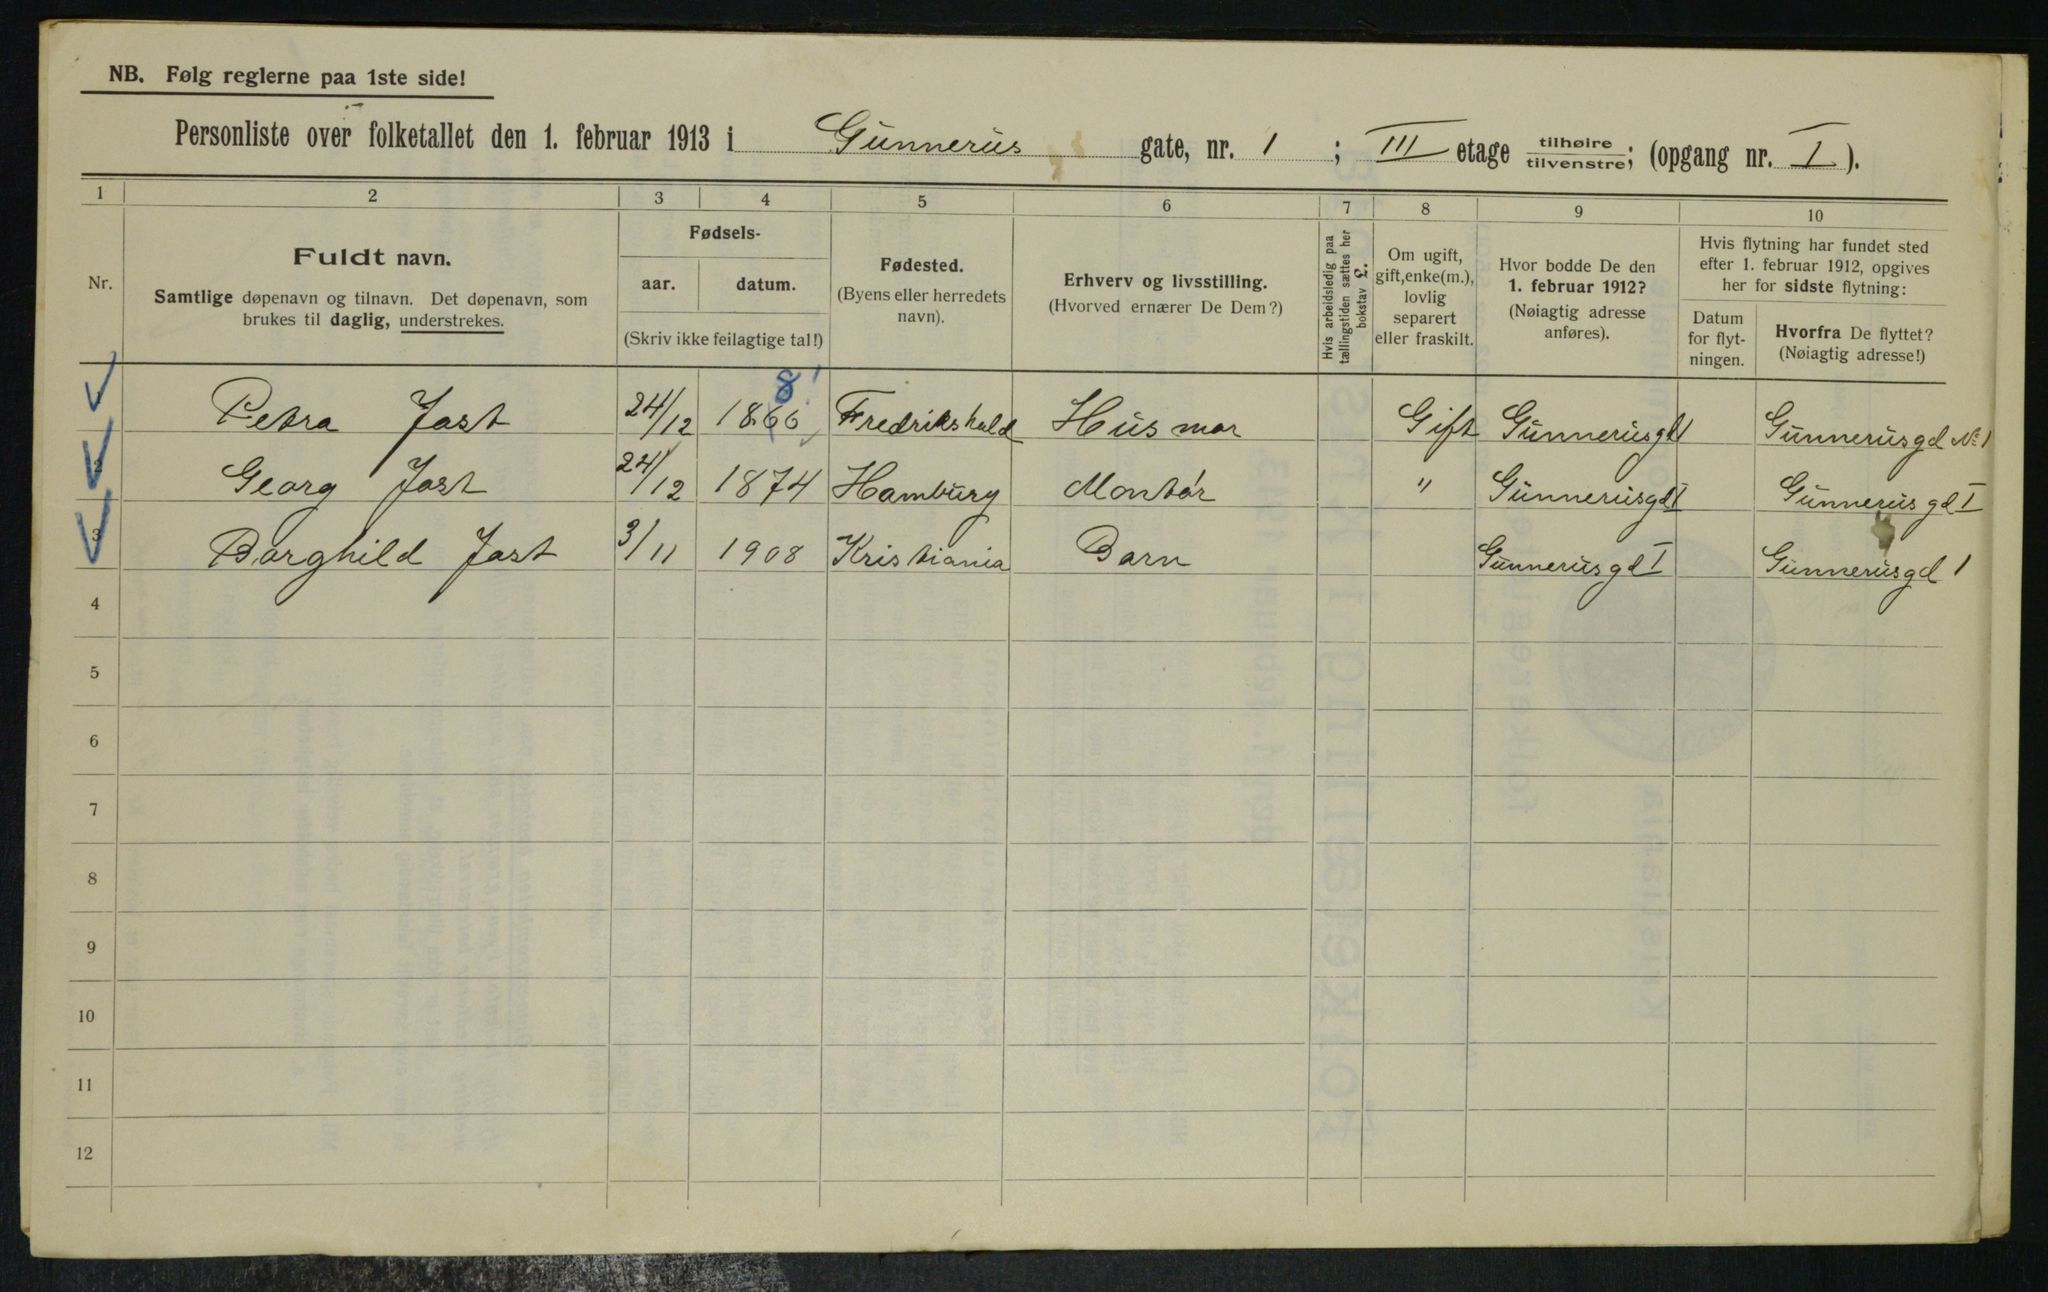 NB. Følg reglerne paa 1ste side!
Personliste over folketallet den 1. februar 1913 i Gunnerus gate, nr. 1 ; III etage tilhøire tilvenstre; (opgang nr. I ).
1 2 3 4 5 6 7 8 9 10
Nr.
Fuldt navn.
Samtlige døpenavn og tilnavn. Det døpenavn, som
brukes til daglig, understrekes.
Fødsels-
aar. datum.
(Skriv ikke feilagtige tal!)
Fødested.
(Byens eller herredets
navn).
Erhverv og livsstilling.
(Hvorved ernærer De Dem?)
Hvis arbeidsledig paa
tællingstiden sættes her
bokstav L.
Om ugift,
gift, enke(m.),
lovlig
separert
eller fraskilt.
Hvor bodde De den
1. februar 1912?
(Nøiagtig adresse
anføres).
Hvis flytning har fundet sted
efter 1. februar 1912, opgives
her for sidste flytning:
Datum
for flyt-
ningen.
Hvorfra De flyttet?
(Nøiagtig adresse!)
8!
1 Petra Jost 24/12 1866 Fredrikshald Husmor Gift Gunnerusgd 1 Gunnerusgd No 1
2 Georg Jost 24/12 1874 Hamburg Montør " Gunnerusgd I Gunnerusgd I
3 Borghild Jost 3/11 1908 Kristiania Barn Gunnerusgd I Gunnerusgd 1
4
5
6
7
8
9
10
11
12